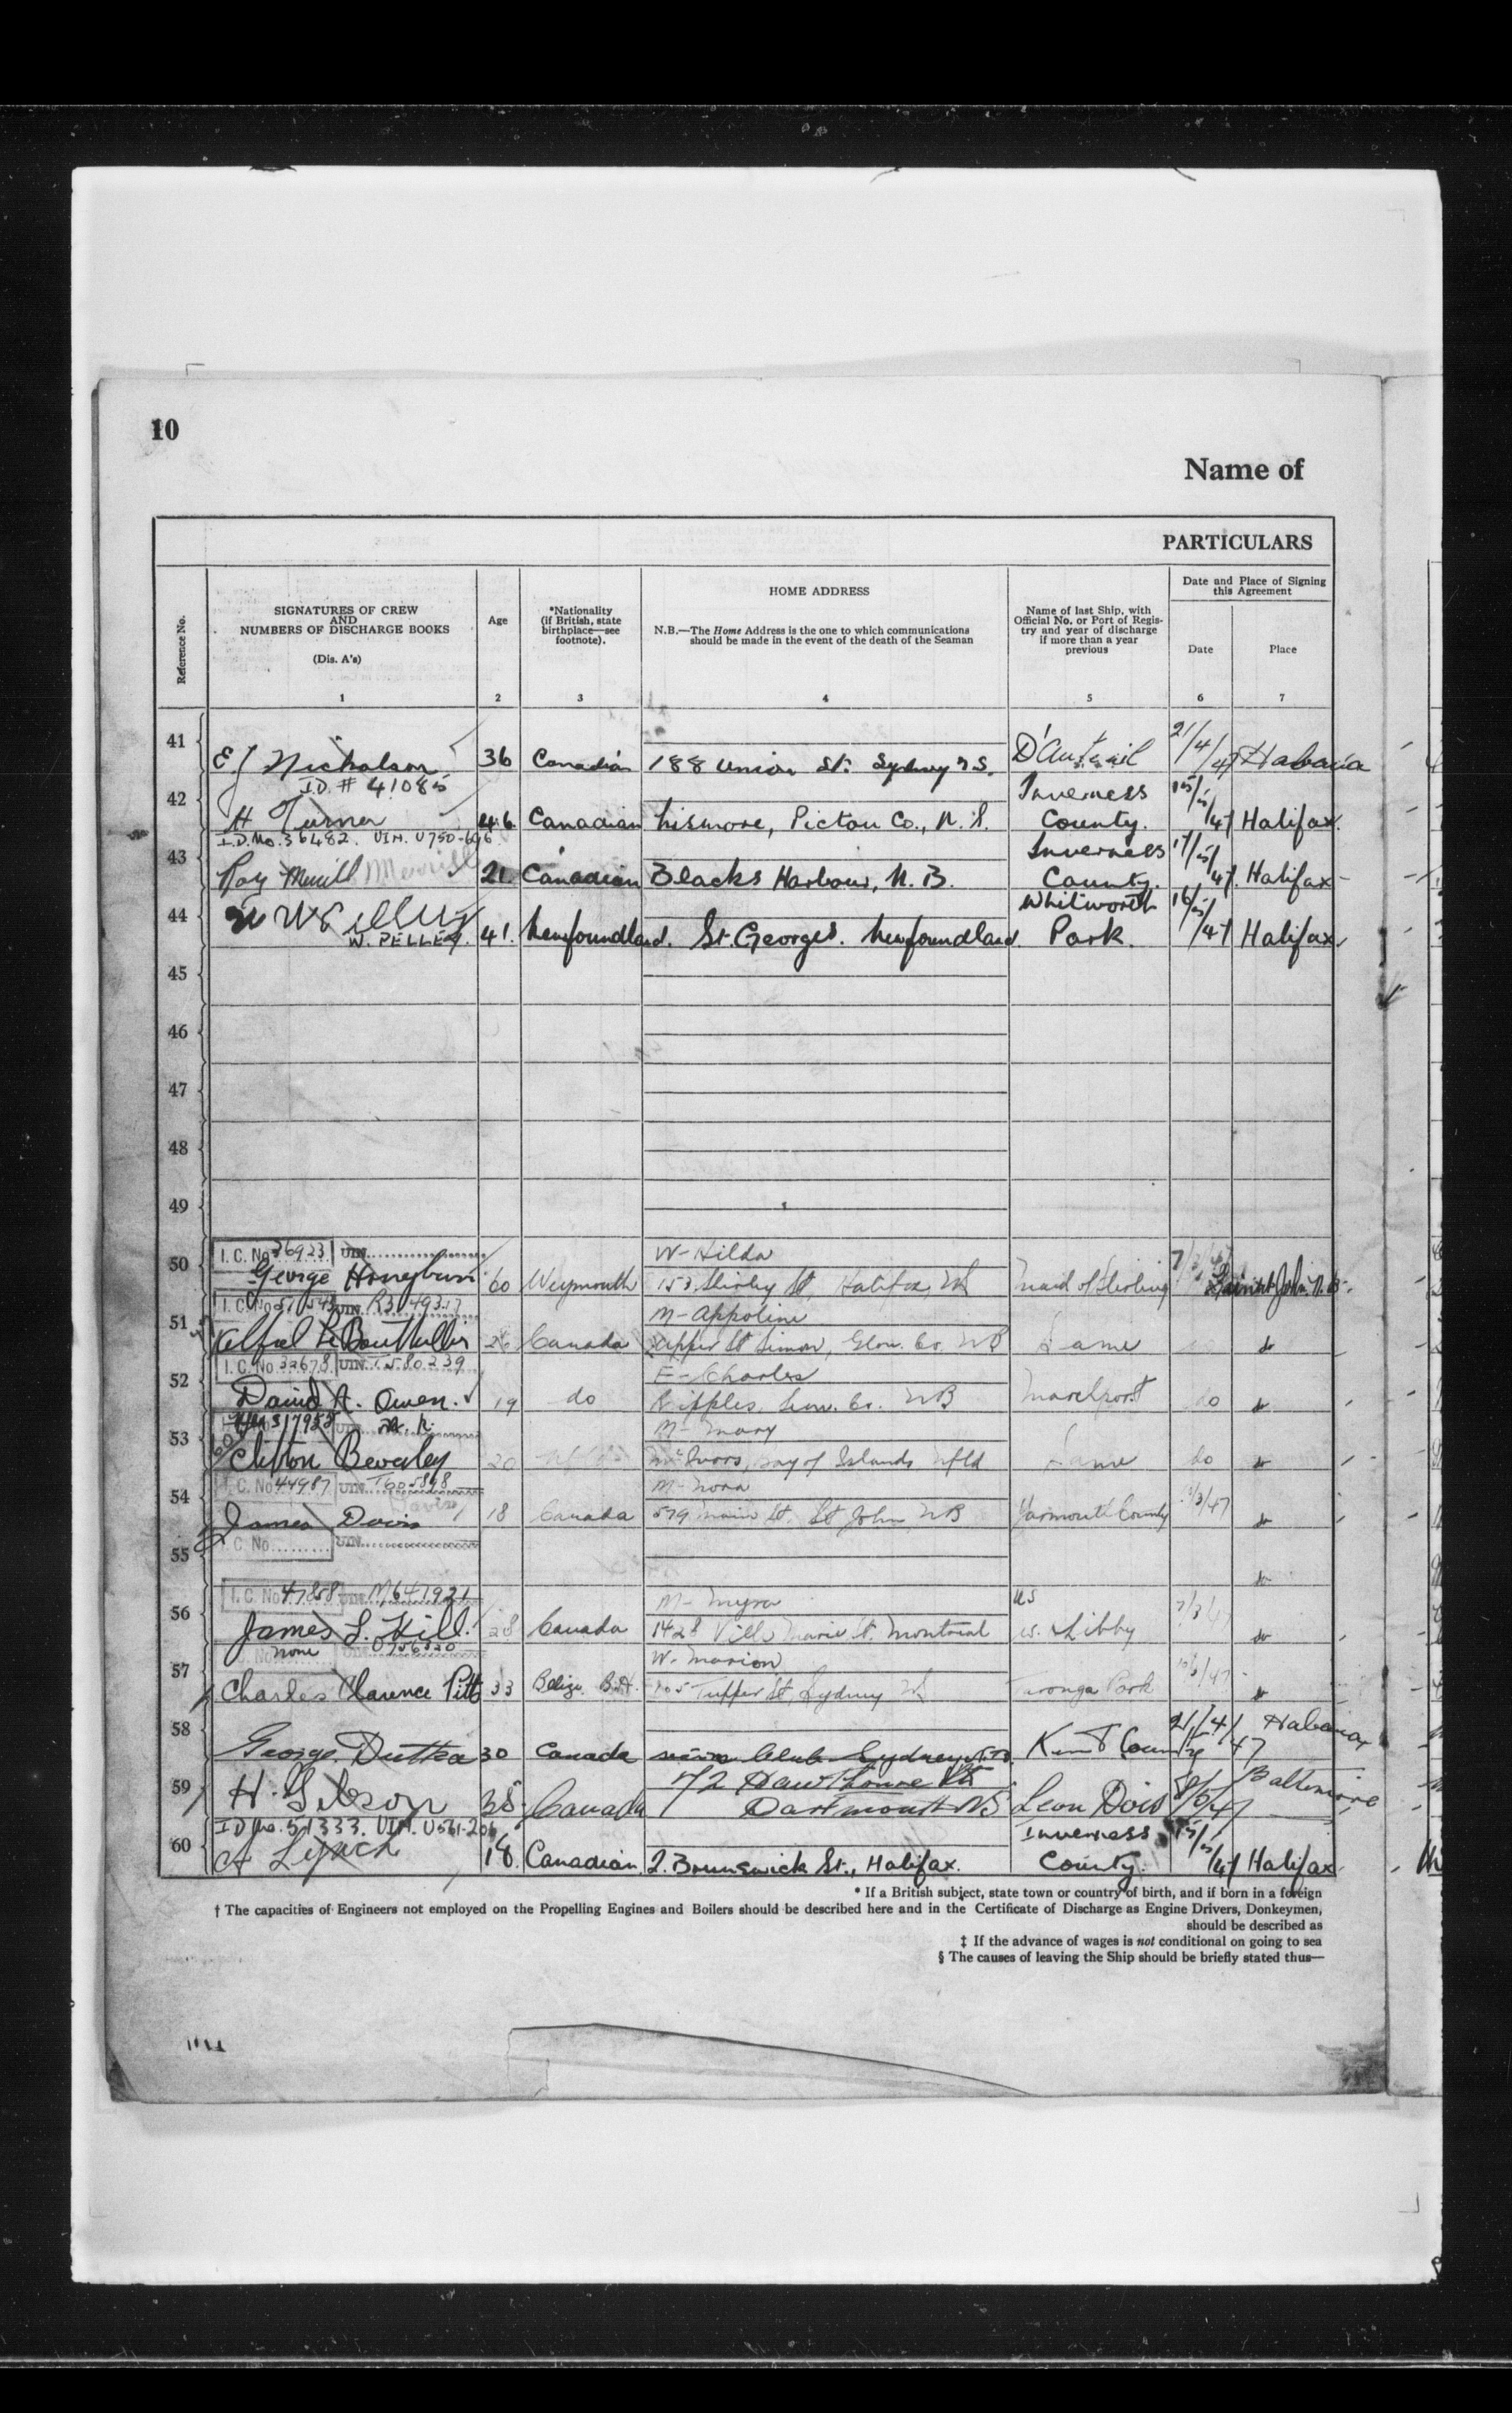 10
Name of
PARTICULARS
Reference No.
SIGNATURES OF CREW
AND
NUMBERS OF DISCHARGE BOOKS
(Dis. A's)
1
Age
2
*Nationality
(if British, state
birthplace—see
footnote).
3
HOME ADDRESS
N.B.—The Home Address is the one to which communications
should be made in the event of the death of the Seaman
4
Name of last Ship, with
Official No. or Port of Regis-
try and year of discharge
if more than a year
previous
5
Date and Place of Signing
this Agreement
Date
6
Place
7
41 E J Nicholson 36 Canadian 188 Union St. Sydney N.S. D'Auteuil 21/4/47 Habana
I.D. # 41085
42 H Turner 46 Canadian Lismore, Pictou Co., N.S. Inverness County. 15/5/47 Halifax
I.D. No. 36482. UIN. U750-646
43 Roy Merrill 21 Canadian Blacks Harbour, N.B. Inverness County. 17/5/47. Halifax
44 W Pelley 41. Newfoundland. St. Georges. Newfoundland. Whitworth Park. 16/5/47 Halifax
W. PELLEY.
45
46
47
48
49
I.C. No 36923 UIN W- Hilda
50 George Honeybun 60 Weymouth 153 Shirley St, Halifax NS Maid of Stirling Saint John N.B.
I.C. No 51543 UIN R3 M- Appoline
51 Alfred LeBouthillier 26 Canada Upper St Simon, Glou. Co. NB Same do
I.C. No 32678 UIN T580239 F- Charles
52 David A. Owen. 19 do Ripples, Co. NB do do
UIN M- Mary
53 Clifton Beverley 20 Bay of Islands Nfld Same do do
I.C. No 44987 UIN T605898 M- Nora
54 James Davis 18 Canada 579 Main St. St John NB Yarmouth County /3/47 do
I.C. No. UIN
55 do
I.C. No 47858 UIN M641921 M- Myra
56 James L. Hill. 28 Canada 1428 Ville Marie St. Montreal Libby do
None U756520 W. Marion
57 Charles Clarence Pitts 33 Belize B.H. 105 Tupper St, Sydney NS Taronga Park do
58 George Dutka 30 Canada Club Sydney N.S. Kent County 21/4/47 Habana
59 H. Gibson 38 Canada 72 Hawthorne St Dartmouth NS Leon Dois 8/6/47 Baltimore
I D No. 51333. UIN. U561-206
60 A Lynch 18. Canadian. 2. Brunswick St., Halifax. Inverness County. 15/5/47 Halifax
* If a British subject, state town or country of birth, and if born in a foreign
† The capacities of Engineers not employed on the Propelling Engines and Boilers should be described here and in the Certificate of Discharge as Engine Drivers, Donkeymen,
should be described as
‡ If the advance of wages is not conditional on going to sea
§ The causes of leaving the Ship should be briefly stated thus—